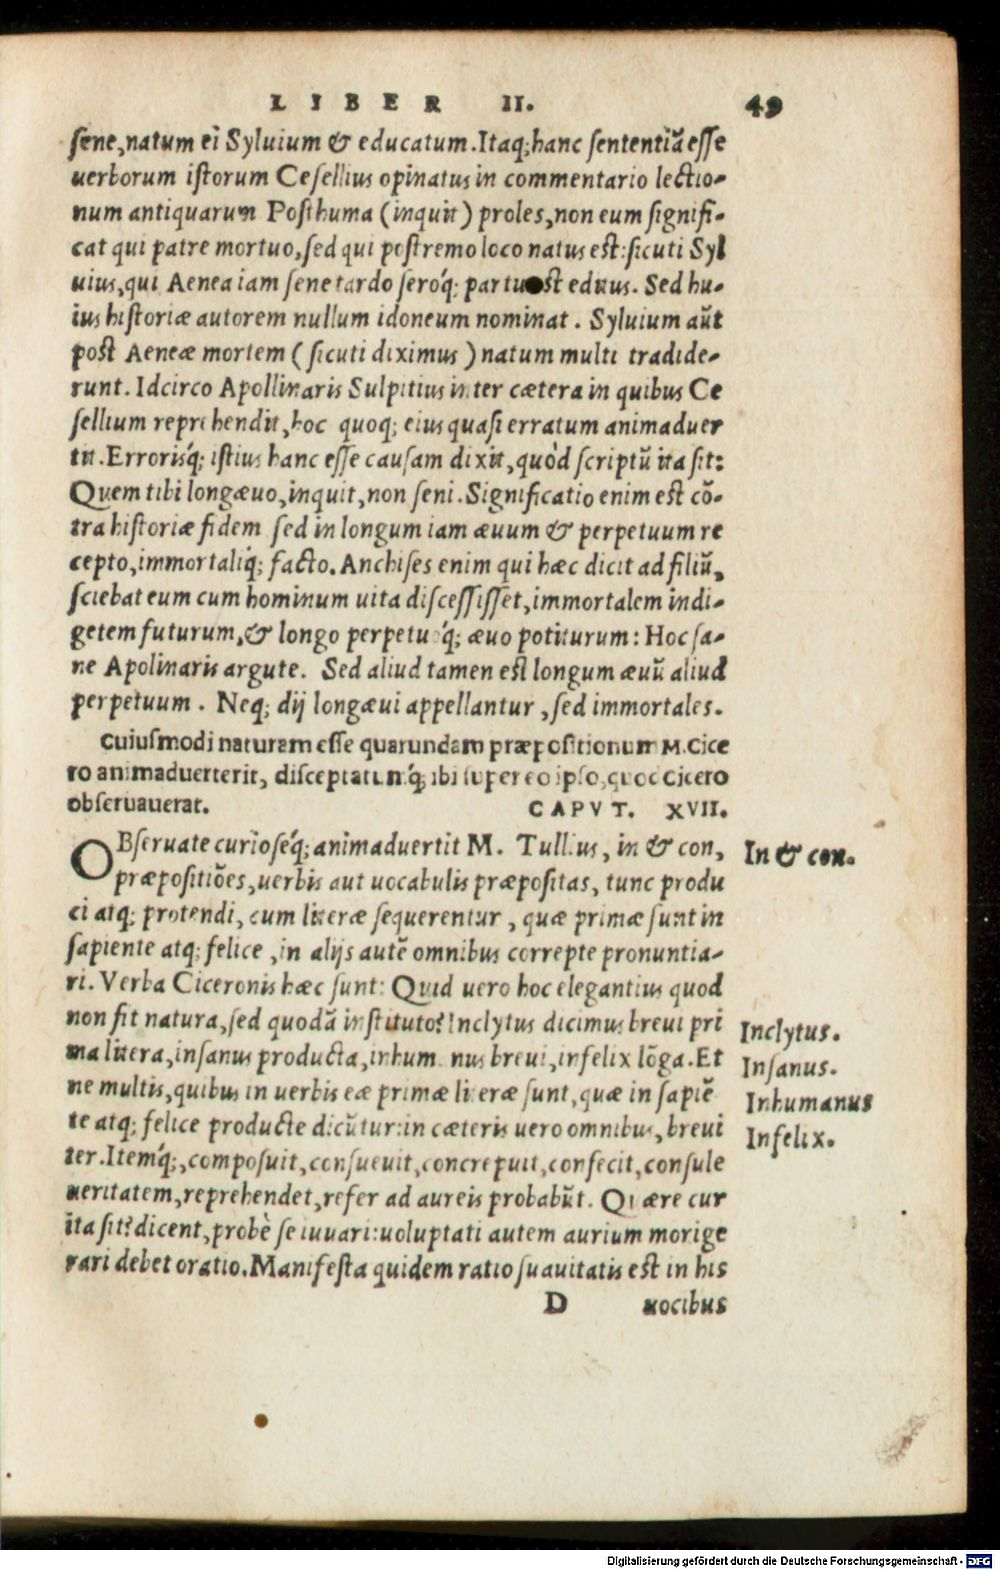 LIBER II. 49
sene, natum ei Syluium & educatum. Itaq; hanc sententiã esse
uerborum istorum Cesellius opinatus in commentario lectio-
num antiquarum Posthuma (inquit) proles, non eum signifi-
cat qui patre mortuo, sed qui postremo loco natus est: sicuti Syl
uius, qui Aenea iam sene tardo seroq́; partu est editus. Sed hu-
ius historiæ autorem nullum idoneum nominat. Syluium aũt
post Aeneæ mortem (sicuti diximus) natum multi tradide-
runt. Idcirco Apollinaris Sulpitius inter cætera in quibus Ce
sellium reprehendit, hoc quoq; eius quasi erratum animaduer
tit. Errorisq́; istius hanc esse causam dixit, quòd scriptũ ita sit:
Quem tibi longæuo, inquit, non seni. Significatio enim est cõ-
tra historiæ fidem sed in longum iam æuum & perpetuum re
cepto, immortaliq́; facto. Anchises enim qui hæc dicit ad filiũ,
sciebat eum cum hominum uita discessisset, immortalem indi-
getem futurum, & longo perpetuoq́; æuo potiturum: Hoc sa-
ne Apolinaris argute. Sed aliud tamen est longum æuũ aliud
perpetuum. Neq; dij longæui appellantur, sed immortales.
Cuiusmodi naturam esse quarundam præpositionum M. Cice
ro animaduerterit, disceptatumq́; ibi super eo ipso, quod Cicero
obseruauerat. CAPVT. XVII.
OBseruate curioseq́; animaduertit M. Tullius, in & con,
præpositiões, uerbis aut uocabulis præpositas, tunc produ
ci atq; protendi, cum literæ sequerentur, quæ primæ sunt in
sapiente atq; felice, in alijs autẽ omnibus correpte pronuntia-
ri. Verba Ciceronis hæc sunt: Quid uero hoc elegantius quod
non fit natura, sed quodã instituto? Inclytus dicimus breui pri
ma litera, insanus producta, inhumanus breui, infelix lõga. Et
ne multis, quibus in uerbis eæ primæ literæ sunt, quæ in sapiẽ
te atq; felice producte dicũtur: in cæteris uero omnibus, breui
ter. Itemq́;, composuit, consueuit, concrepuit, confecit, consule
ueritatem, reprehendet, refer ad aureis probabũt. Quære cur
ita sit? dicent, probè se iuuari: uoluptati autem aurium morige
rari debet oratio. Manifesta quidem ratio suauitatis est in his
D uocibus
In & con.
Inclytus.
Insanus.
Inhumanus
Infelix.
Digitalisierung gefördert durch die Deutsche Forschungsgemeinschaft - DFG